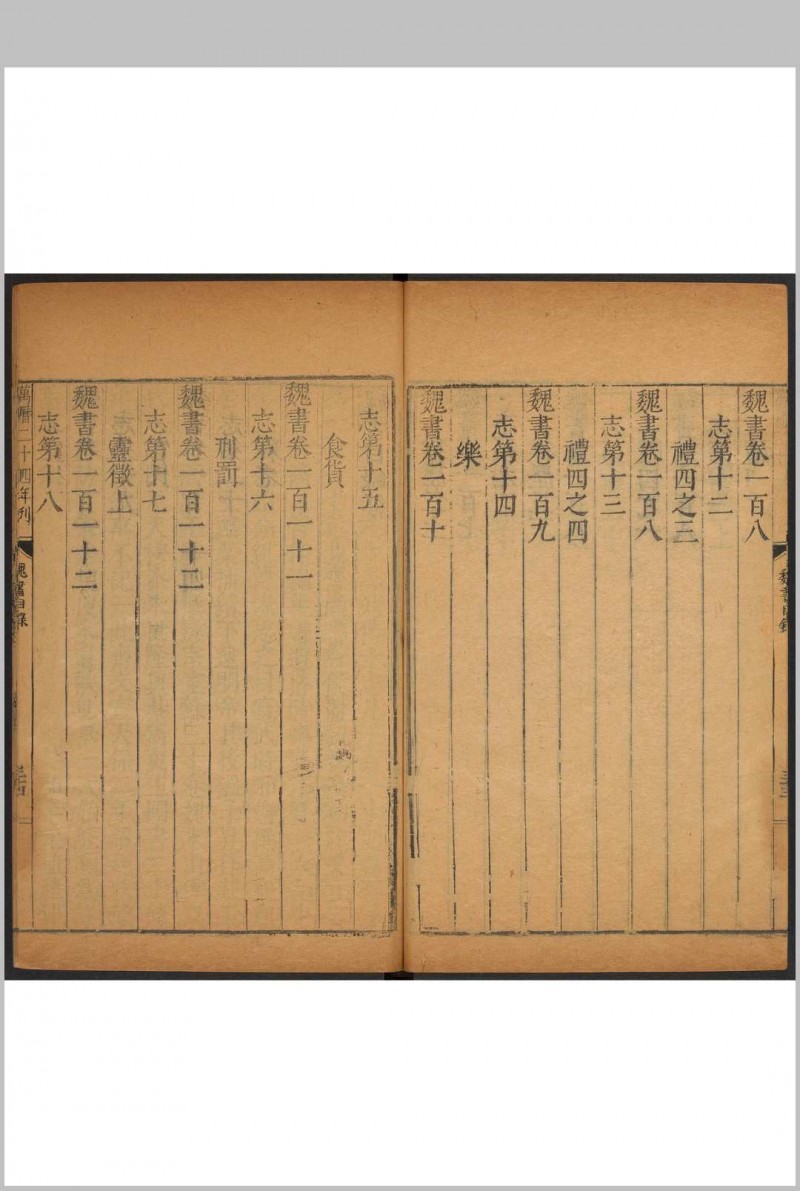 魏書目錄
魏書卷一百八
志第十二
禮四之三
魏書卷一百八
志第十三
禮四之四
魏書卷一百九
志第十四
樂
魏書卷一百十
志第十五
食貨
魏書卷一百一十一
志第十六
刑罰
魏書卷一百一十二
志第十七
靈徵上
魏書卷一百一十二
志第十八
萬曆二十四年刋
魏書目錄